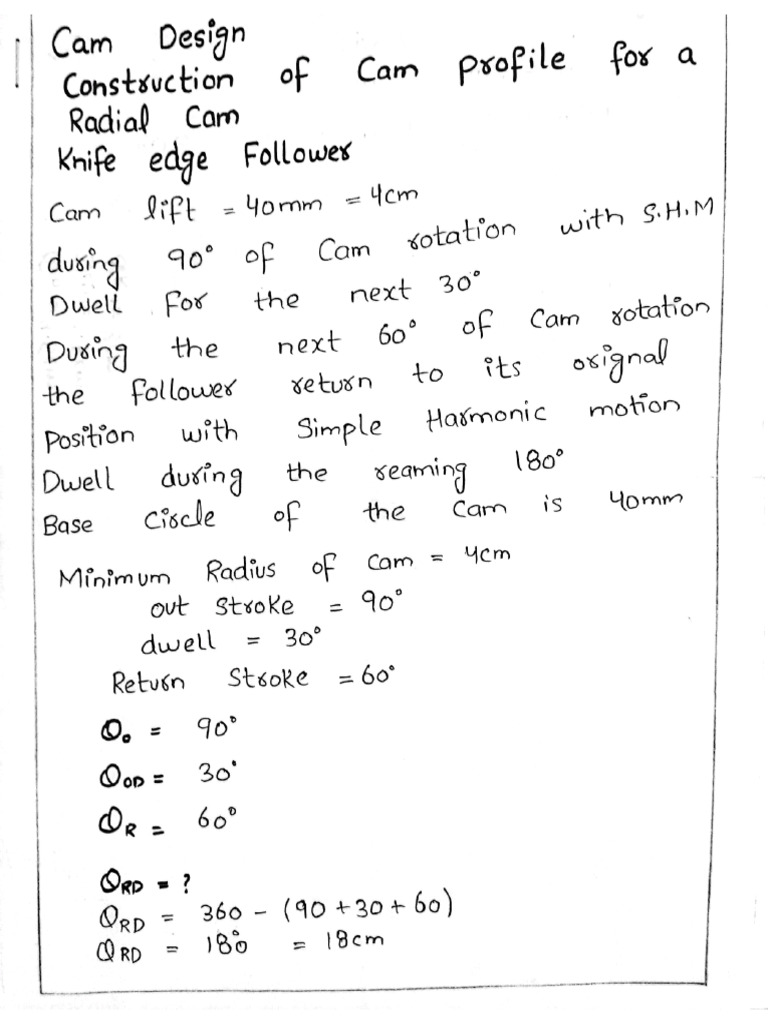 Cam Design
Construction of Cam profile for a
Radial Cam
Knife edge Follower
Cam lift = 40mm = 4cm
during 90° of Cam rotation with S.H.M
Dwell For the next 30°
During the next 60° of Cam rotation
the follower return to its orignal
Position with Simple Harmonic motion
Dwell during the reaming 180°
Base Circle of the Cam is 40mm
Minimum Radius of cam = 4cm
out stroke = 90°
dwell = 30°
Return Stroke = 60°
θo = 90°
θOD = 30°
θR = 60°
θRD = ?
θRD = 360 - (90 + 30 + 60)
θRD = 180° = 18cm